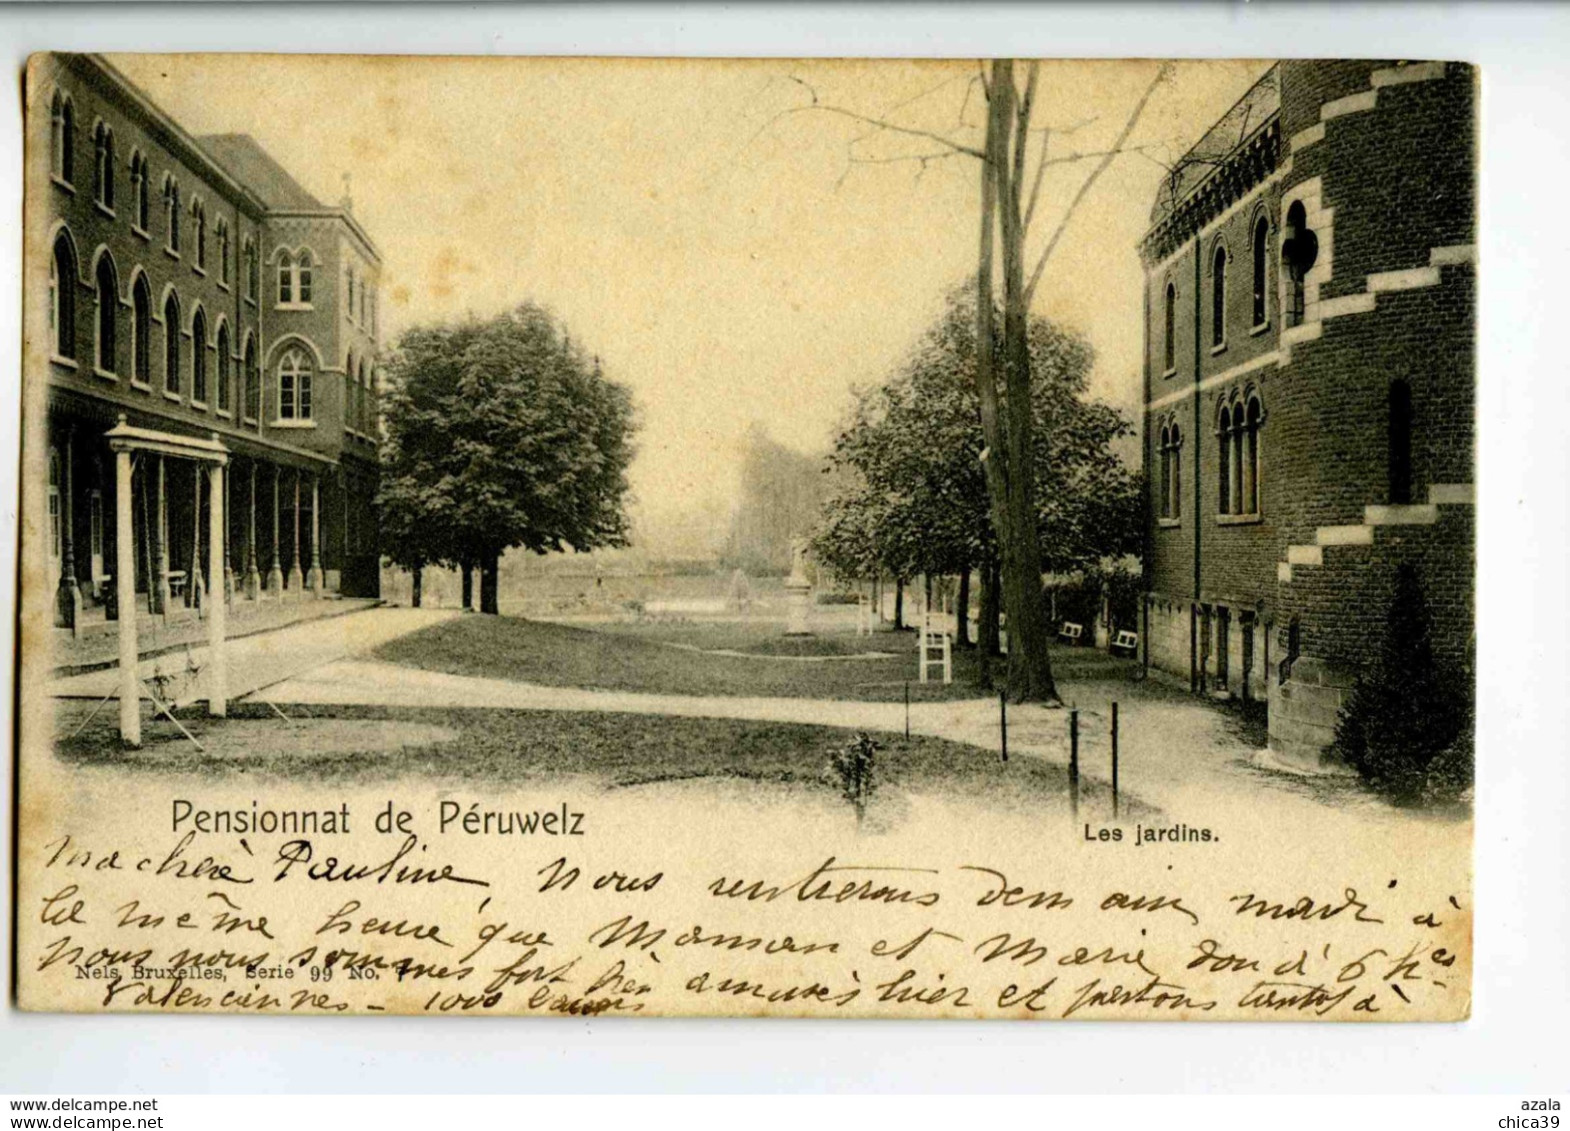 Pensionnat de Péruwelz
Les jardins.
Ma chère Pauline, nous rentrerons demain mardi à
la même heure que Maman et Marie, donc à 6 hes
Nous nous sommes fort bien amusés hier et partons tantôt à
Nels, Bruxelles, Serie 99 No. 7
Valenciennes - 1000
www.delcampe.net
azala
chica39